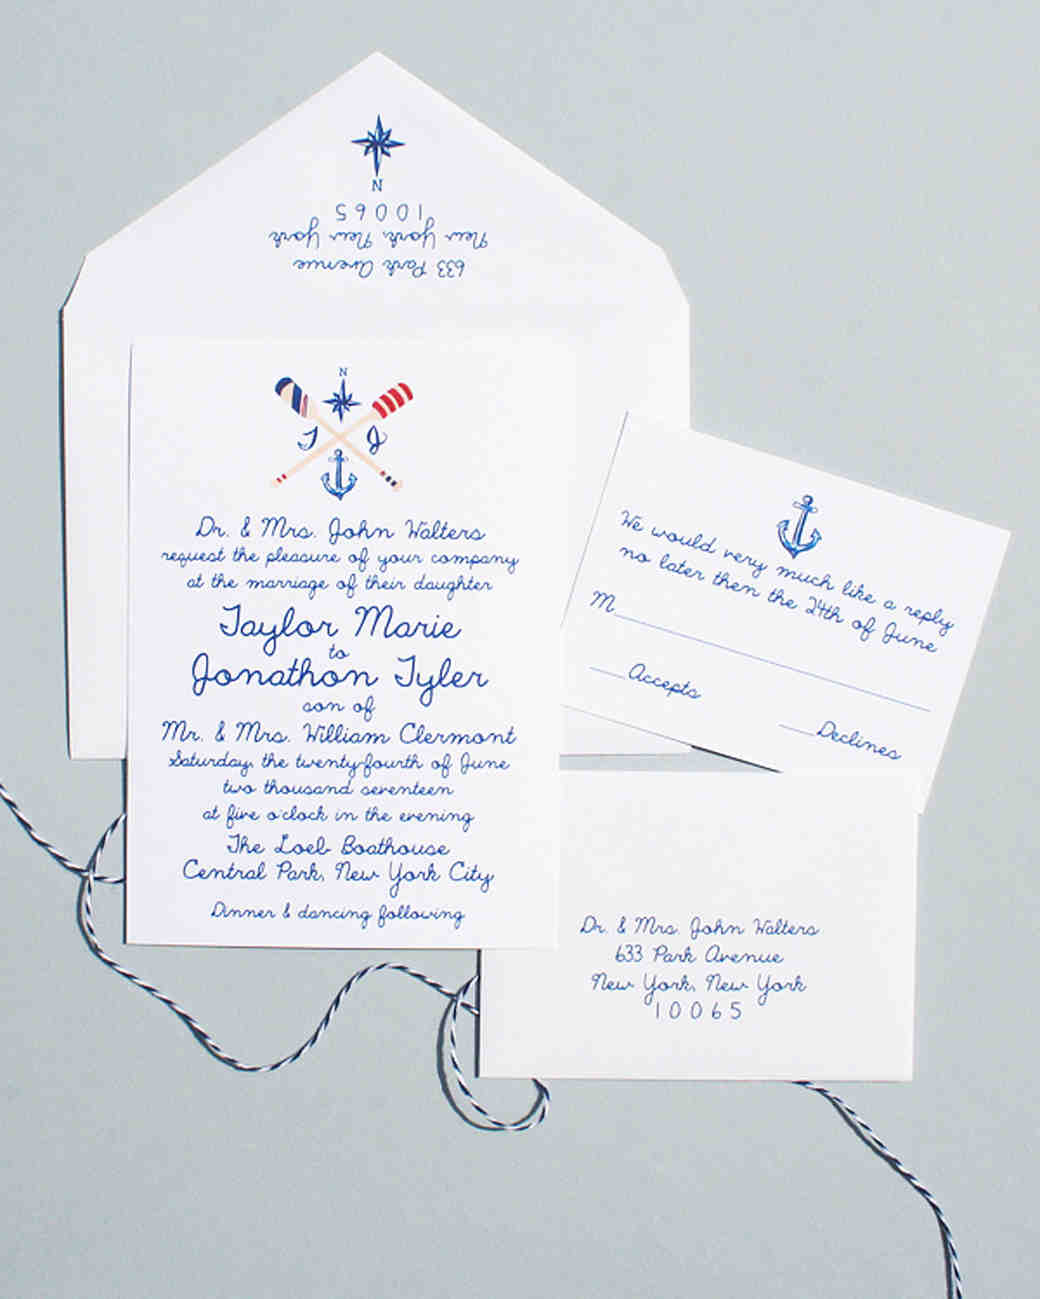 N
633 Park Avenue
New York, New York
10065
N
T J
Dr. & Mrs. John Walters
request the pleasure of your company
at the marriage of their daughter
Taylor Marie
to
Jonathon Tyler
son of
Mr. & Mrs. William Clermont
Saturday, the twenty-fourth of June
two thousand seventeen
at five o'clock in the evening
The Loeb Boathouse
Central Park, New York City
Dinner & dancing following
We would very much like a reply
no later then the 24th of June
M
Accepts
Declines
Dr. & Mrs. John Walters
633 Park Avenue
New York, New York
10065